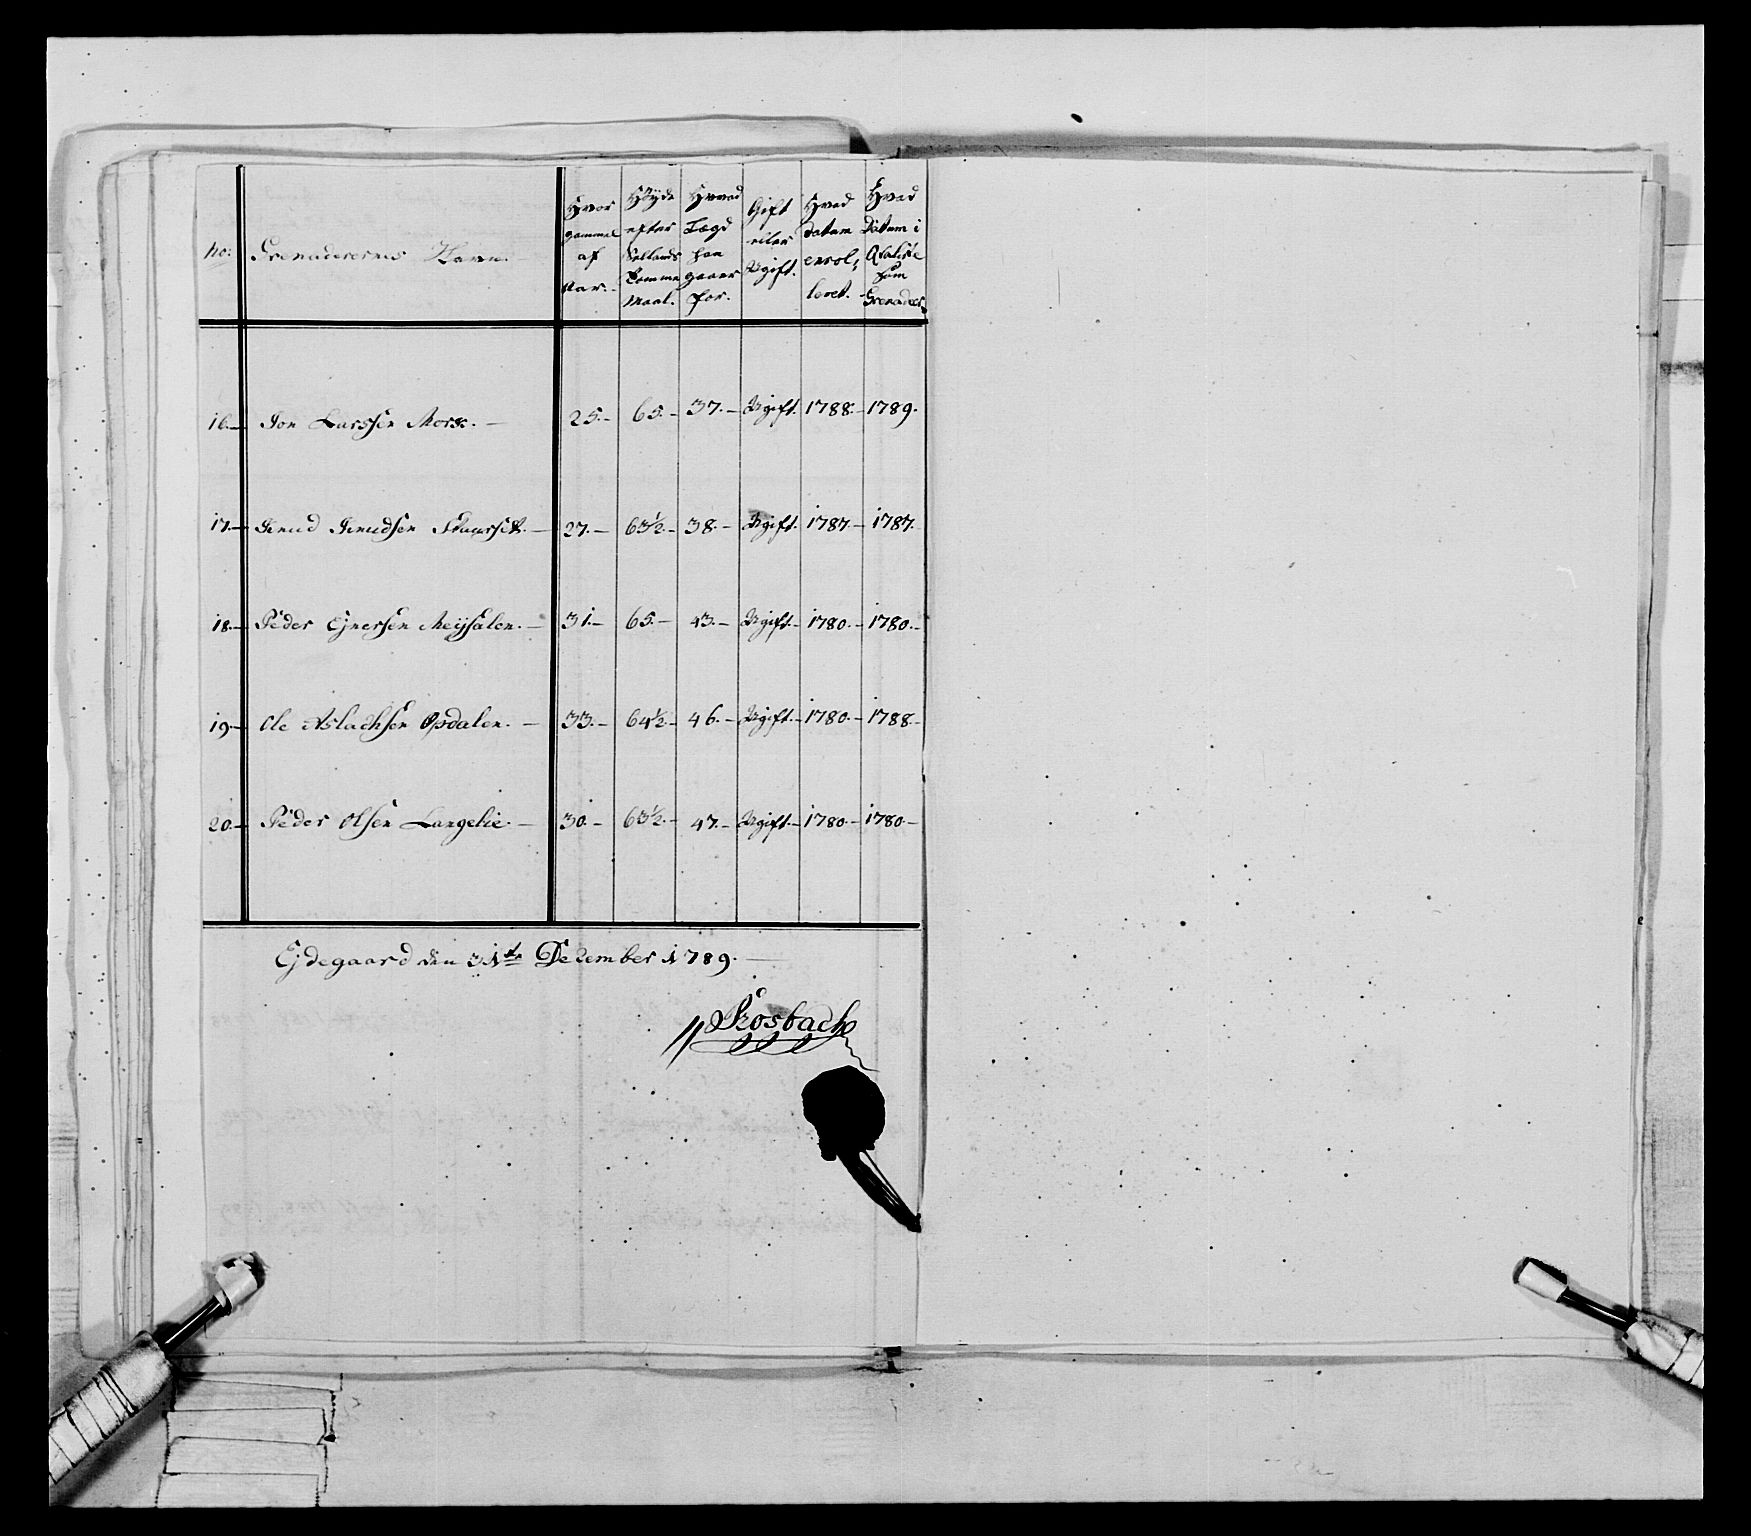 No: Grenaderernes Navn. Hvor gammel af Aar. Höyde efter Sællands Tomme Maal. Hvad Lægd han gaaer for. Gift eller Ugift. Hvad datum enrolleret. Hvad Datum i Qvalité som Grenadeer.
16.– Jon Larssen Morse. – 25.– 65.– 37.– Ugift. 1788.– 1789.
17.– Knud Knudsen – 27.– 63½.– 38.– Ugift. 1787.– 1787.
18.– Peder Ejnersen Meÿsalen. – 31.– 65.– 43.– Ugift.– 1780.– 1780.–
19.– Ole Aslachsen Opdalen. – 33.– 64½.– 46.– Ugift.– 1780.– 1788.–
20.– Peder Olsen Langelie. – 30.– 63½.– 47.– Ugift.– 1780.– 1780.–
Ejdegaard den 31te December 1789. –